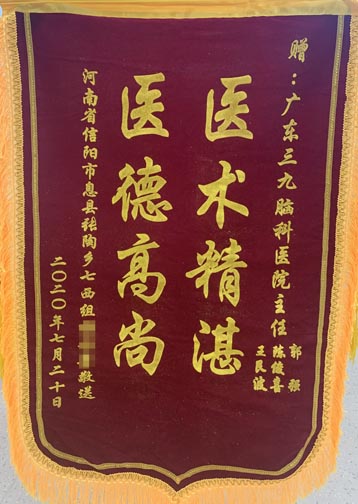 赠：广东三九脑科医院主任
郭强
陈俊喜
王良波
医术精湛
医德高尚
河南省信阳市息县张陶乡七西组
敬送
二〇二〇年七月二十日